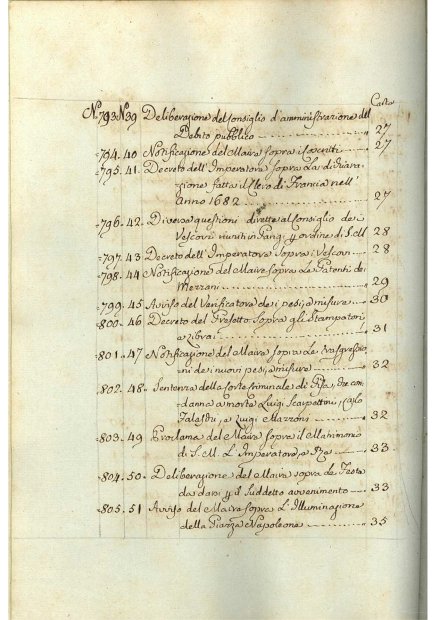 Carte
N. 793. N. 39 Deliberazione del Consiglio d'amministrazione del
Debito pubblico 27
794. 40 Notificazione del Maire sopra i Coscritti 27
795. 41. Decreto dell'Imperatore sopra La dichiara
zione fatta il Clero di Francia nell'
Anno 1682 27
796. 42. Diverse questioni dirette al Consiglio dei
Vescovi riuniti in Parigi p ordine di S. M 28
797. 43 Decreto dell'Imperatore sopra i Vescovi 28
798. 44 Notificazione del Maire sopra Le Patenti de
Mercanti 29
799. 45 Avviso del Verificatore dei pesi, e misure 30
800. 46 Decreto del Prefetto sopra gli Stampatori
e Librai 31
801. 47 Notificazione del Maire sopra Le Trasgressio
ni dei nuovi pesi, e misure 32
802. 48 Sentenza della Corte Criminale di Pisa, che con
danna a morte Luigi Scarpettini, Carlo
e Luigi Mazzoni 32
803. 49 Proclama del Maire sopra il Matrimonio
di S. M. L'Imperatore, e Re 33
804. 50 Deliberazione del Maire sopra Le Feste
da darsi p il Suddetto avvenimento 33
805. 51 Avviso del Maire sopra L'Illuminazione
della Piazza Napoleone 35